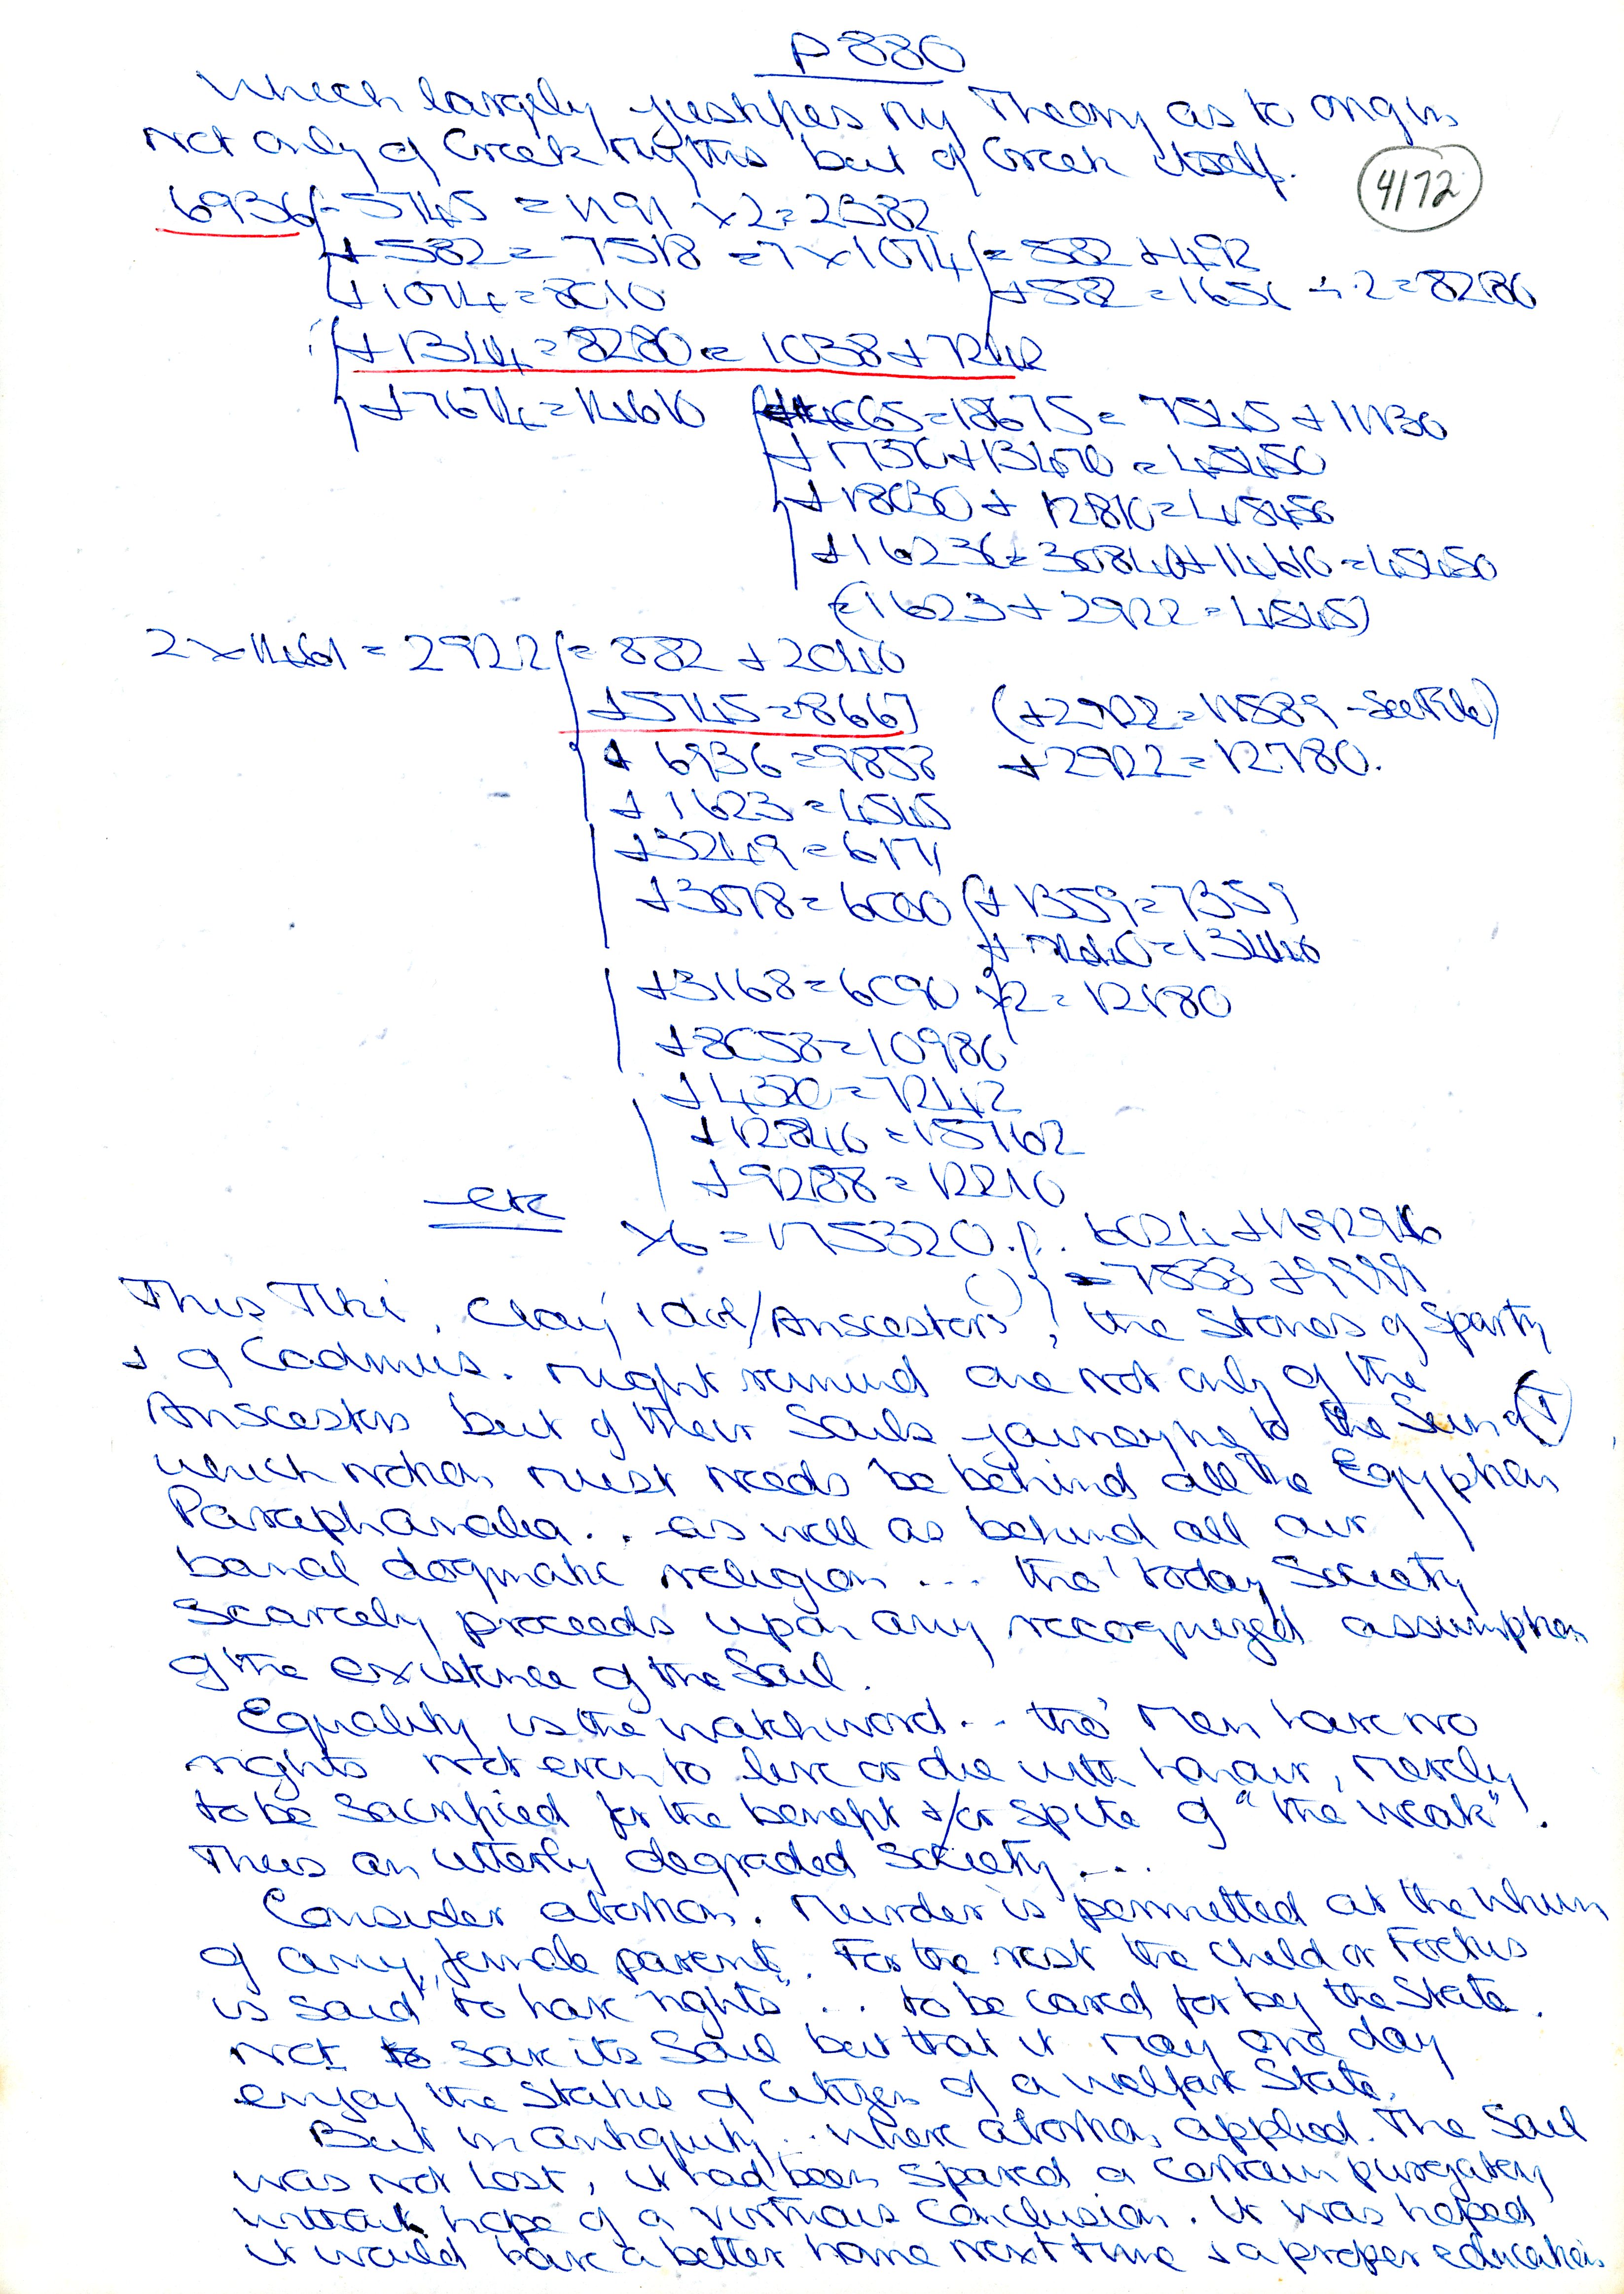 P 880
Which largely justifies my Theory as to origin
not only of Greek Myths but of Greek itself.
4172
6936 - 5745 = 1191 x 2 = 2382
+ 582 = 7518 = 7 x 1074 = 582 + 492
+ 1074 = 8010 + 582 = 1656 ÷ 2 = 828
+ 1344 = 8280 = 1038 + 7242
+ 7674 = 14610 + 4065 = 18675 = 7545 + 11130
+ 17350 + 13490 = 45450
+ 18030 + 12810 = 45450
+ 16236 = 30840 + 14610 = 45450
(1623 + 2922 = 4545)
2 x 1461 = 2922 = 882 + 2040
+ 5745 = 8667 (+ 2922 = 11589 - See File)
+ 6936 = 9858 + 2922 = 12780.
+ 1623 = 4545
+ 3249 = 6171
+ 3078 = 6000 + 1359 = 7359
+ 7440 = 13440
+ 3168 = 6090 x 2 = 12180
+ 8058 = 10980
+ 4320 = 7242
+ 12840 = 15762
+ 9288 = 12210
- etc
x 6 = 175320 . 6024 + 169296
= 7833 + 9999
This Tiki, Clay idol/Anscestors, the Stones of Sparty
+ of Cadmus. Might remind one not only of the
Anscestors but of their Souls journeying to the Sun of T
which notion must needs be behind all the Egyptian
Paraphanalia .. as well as behind all our
banal dogmatic religion ... tho' today Society
scarcely proceeds upon any recognized assumption
of the existence of the Soul.
Equality is the watchword .. tho' Men have no
rights not even to live or die with honour, merely
to be sacrificed for the benefit +/or spite of "the weak"!
Thus an utterly degraded Society ...
Consider abortion. Murder is permitted at the whim
of any "female parent". For the rest the child or Foetus
is said "to have rights" ... to be cared for by the State.
Not to save its Soul but that it may one day
enjoy the Status of citizen of a welfare State.
But in antiquity .. where abortion applied. The Soul
was not lost, it had been spared a certain purgatory
without hope of a virtuous Conclusion. It was hoped
it would have a better home next time + a proper education